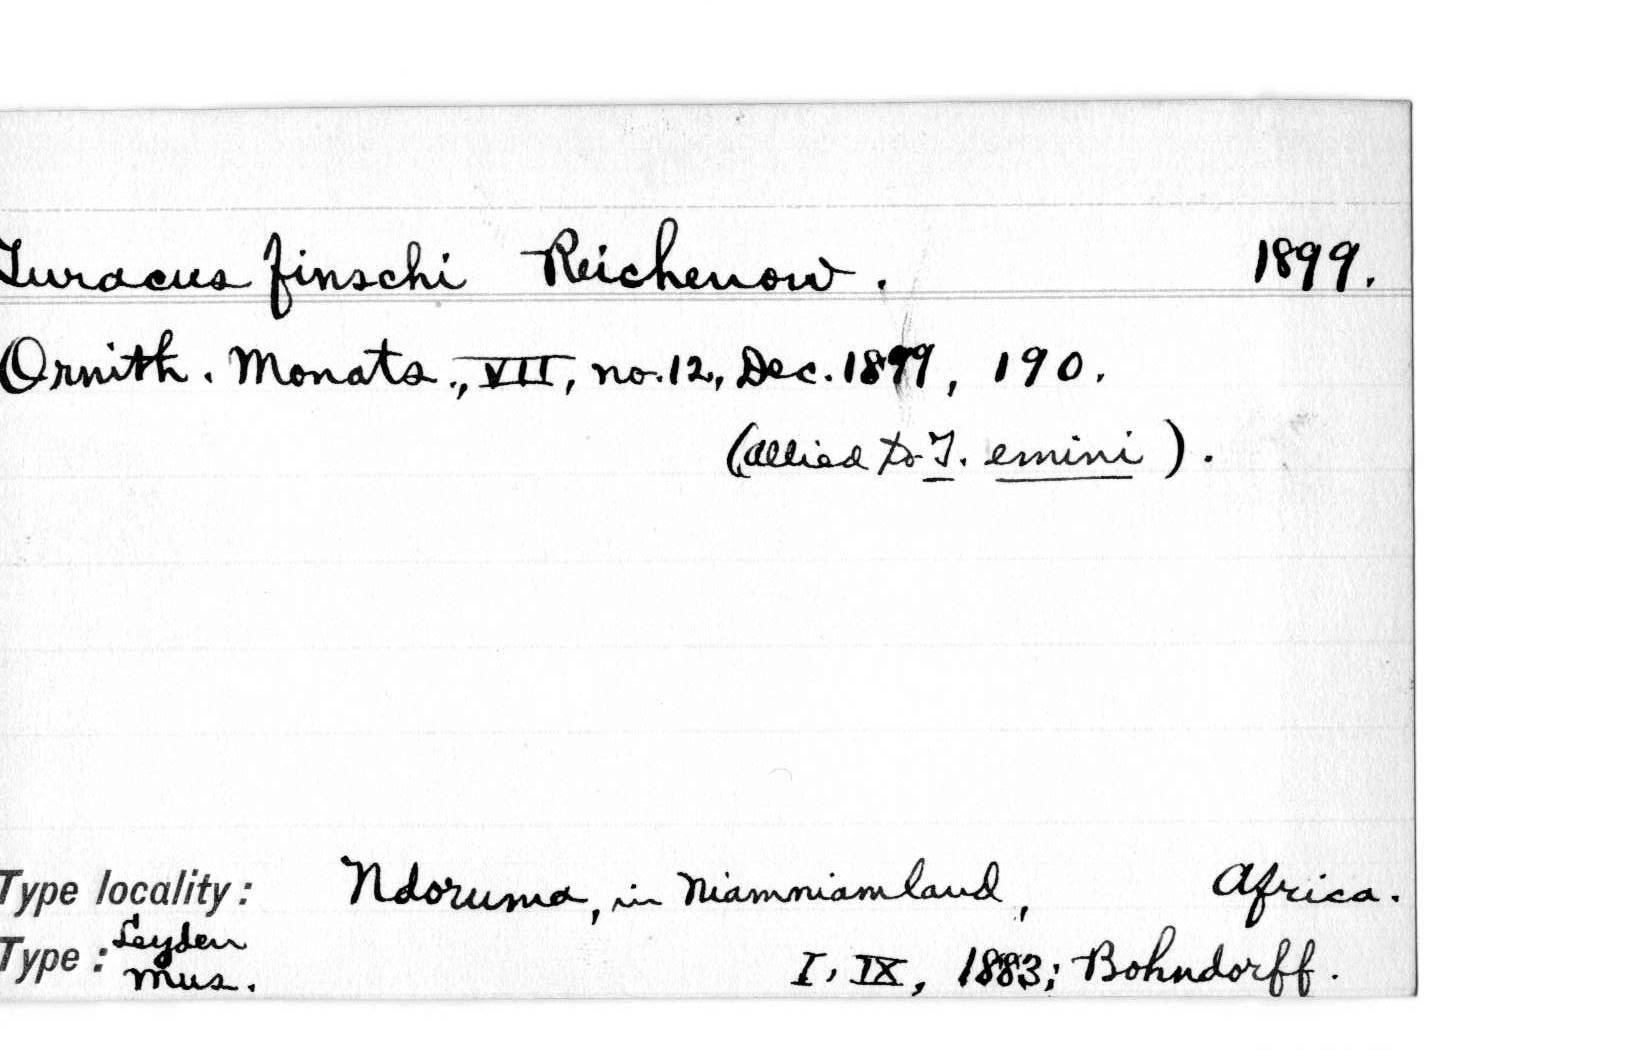 Turacus finschi Reichenow. 1899.
Ornith. Monats., VII, no. 12, Dec. 1899, 190.
(allied to T. emini).
Type locality: Ndoruma, in Niamniamland, Africa.
Type: Leyden Mus. I, IX, 1883; Bohndorff.